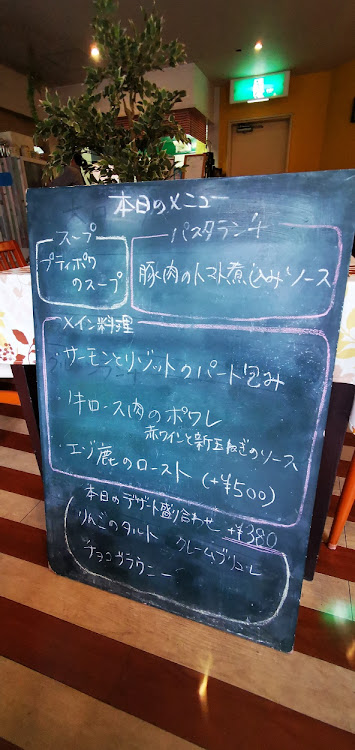 本日のメニュー
スープ
プティポワ
のスープ
パスタランチ
豚肉のトマト煮込みソース
メイン料理
・サーモンとリゾットのパート包み
・牛ロース肉のポワレ
赤ワインと新玉ねぎのソース
・エゾ鹿のロースト (+¥500)
本日のデザート盛り合わせ +¥380
りんごのタルト クレームブリュレ
チョコブラウニー